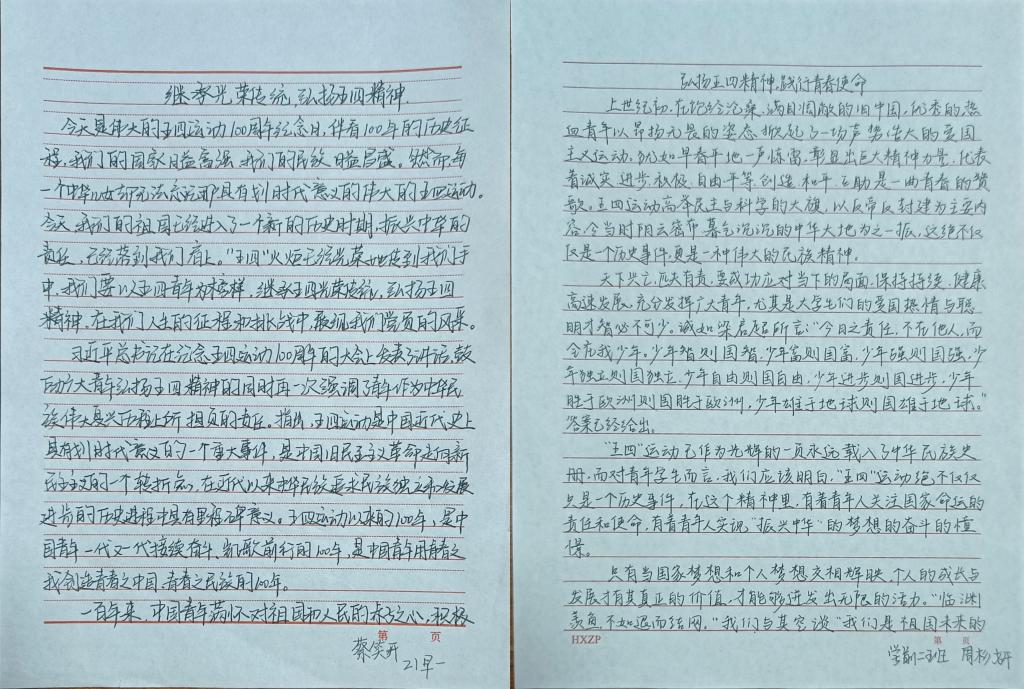 继承光荣传统,弘扬五四精神.
今天是伟大的五四运动100周年纪念日,伴有100年的历史征
程,我们的国家日益富强,我们的民族日益昌盛。然而,每
一个中华儿女都无法忘记那具有划时代意义的伟大的五四运动。
今天,我们的祖国已经进入了一个新的历史时期,振兴中华的
责任,已经落到我们肩上。"五四"火炬已经光荣地传到我们手
中,我们要以五四青年为榜样,继承五四光荣传统,弘扬五四
精神,在我们人生的征程和挑战中,展现我们党员的风采。
习近平总书记在纪念五四运动100周年的大会上发表了讲话,鼓
励广大青年弘扬五四精神的同时再一次强调了青年作为中华民
族伟大复兴历程上所担负的责任。指出,五四运动是中国近代史上
具有划时代意义的一个重大事件,是中国旧民主主义革命走向新
民主主义的一个转折点,在近代以来中华民族追求民族独立和发展
进步的历史进程中具有里程碑意义。五四运动以来的100年,是中
国青年一代又一代接续奋斗、凯歌前行的100年,是中国青年用青春之
我创造青春之中国、青春之民族的100年。
一百年来,中国青年满怀对祖国和人民的赤子之心,积极
第 页
蔡笑开
21早一
弘扬五四精神,践行青春使命
上世纪初,在饱经沧桑、满目凋敝的旧中国,优秀的、热
血青年以昂扬无畏的姿态掀起了一场声势浩大的爱国
主义运动,犹如早春平地一声惊雷,彰显出巨大精神力量,代表
着诚实、进步、积极、自由平等、创造、和平、互助是一曲青春的赞
歌。五四运动高举民主与科学的大旗,以反帝反封建为主要内
容,令当时阴云密布、暮气沉沉的中华大地为之一振,这绝不仅
仅是一个历史事件,更是一种伟大的民族精神。
天下兴亡,匹夫有责,要成功应对当下的局面,保持持续、健康
高速发展,充分发挥广大青年,尤其是大学生们的爱国热情与聪
明才智必不可少。诚如梁启超所言:"今日之责任,不在他人,而
全在我少年。少年智则国智,少年富则国富,少年强则国强,少
年独立则国独立,少年自由则国自由,少年进步则国进步,少年
胜于欧洲则国胜于欧洲,少年雄于地球则国雄于地球。"
答案已经给出。
"五四"运动已作为光辉的一页永远载入了中华民族史
册,而对青年学生而言,我们应该明白,"五四"运动绝不仅仅
只是一个历史事件,在这个精神里,有着青年人关注国家命运的
责任和使命,有着青年人实现"振兴中华"的梦想的奋斗的憧
憬。
只有当国家梦想和个人梦想交相辉映,个人的成长与
发展才有其真正的价值,才能够迸发出无限的活力。"临渊
羡鱼不如退而结网。"我们与其空谈"我们是祖国未来的
HXZP
第 页
学前二班 周杉妍